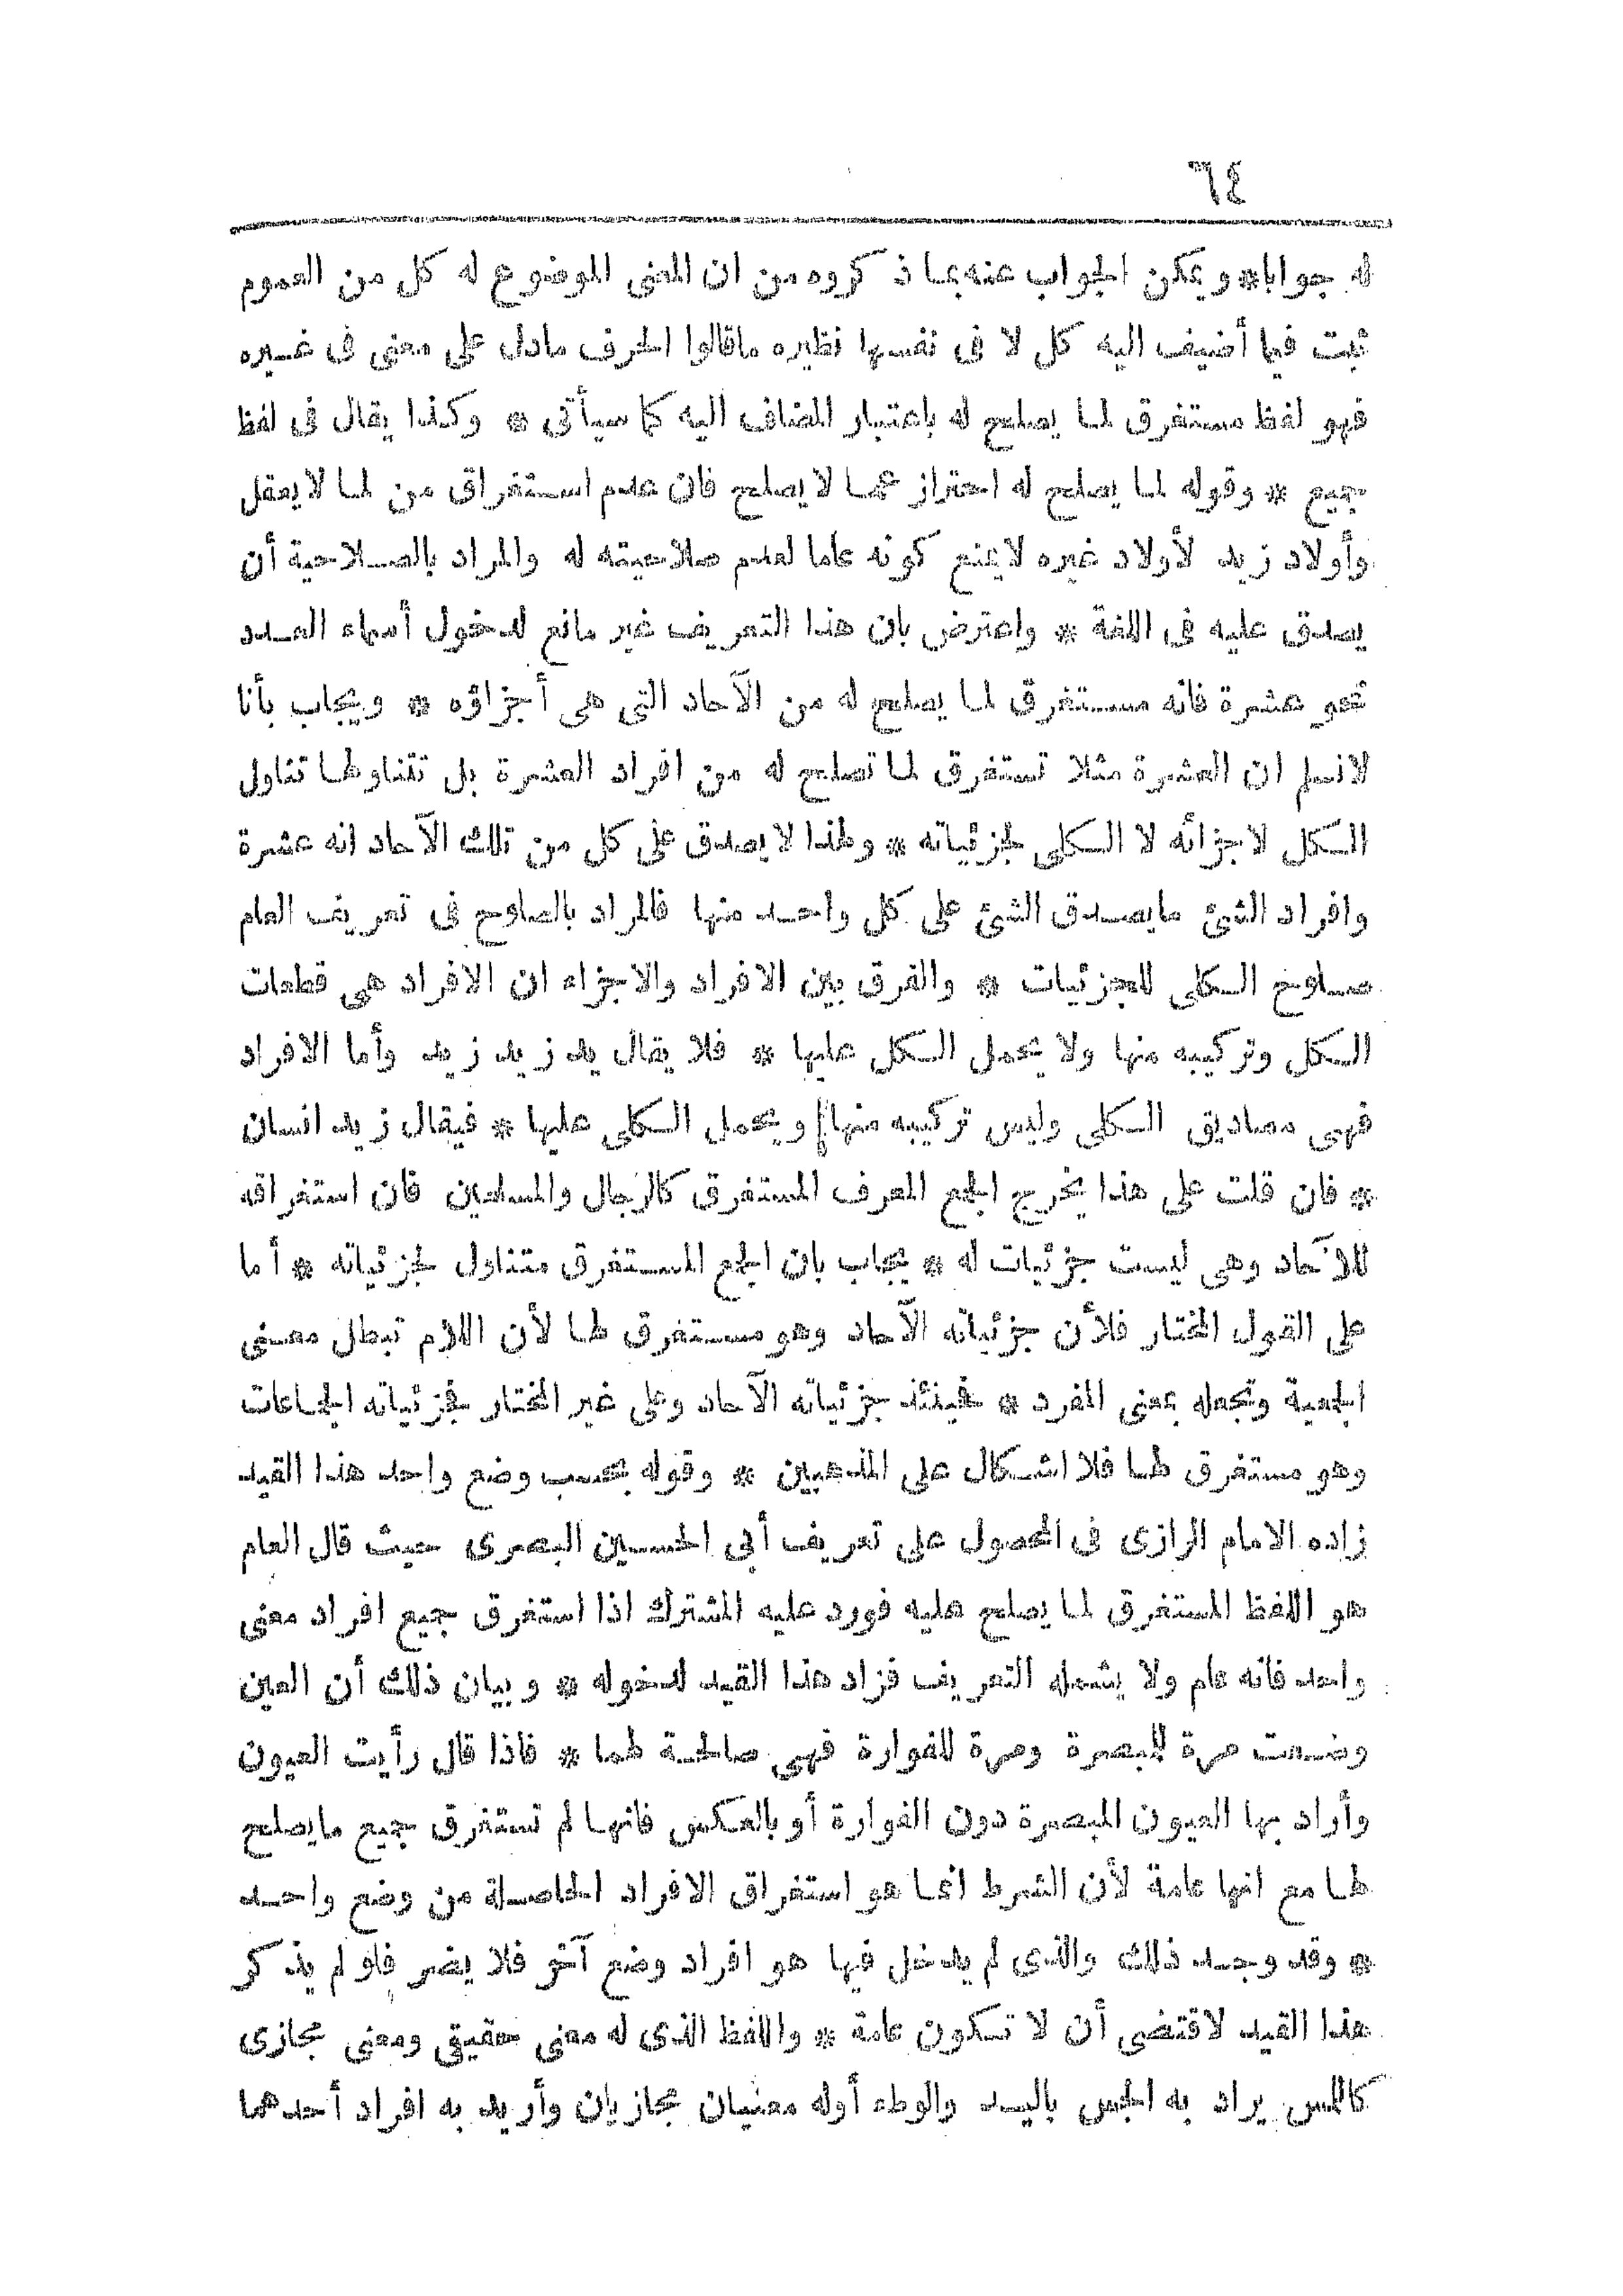 ٦٤
له جوابا* ويمكن الجواب عنه بما ذكروه من ان المعنى الموضوع له كل من العموم
ثبت فيما أضيف اليه كل لا فى نفسها نظيره ماقالوا الحرف مادل على معنى فى غيره
فهو لفظ مستغرق لما يصلح له باعتبار المضاف اليه كما سيأتى * وكذا يقال فى لفظ
جميع * وقوله لما يصلح له احتراز عما لا يصلح فان عدم استغراق من لما لا يعقل
وأولاد زيد لأولاد غيره لا يمنع كونه عاما لعدم صلاحيته له والمراد بالصلاحية أن
يصدق عليه فى اللغة * واعترض بان هذا التعريف غير مانع لدخول أسماء العدد
نحو عشرة فانه مستغرق لما يصلح له من الآحاد التى هى أجزاؤه * ويجاب بأنا
لانسلم ان العشرة مثلا تستغرق لما تصلح له من افراد العشرة بل تتناولها تناول
الكل لاجزائه لا الكلى لجزئياته * ولهذا لا يصدق على كل من تلك الآحاد انه عشرة
وافراد الشئ مايصدق الشئ على كل واحد منها فالمراد بالصلوح فى تعريف العام
صلوح الكلى للجزئيات * والفرق بين الافراد والاجزاء ان الافراد هى قطعات
الكل وتركيبه منها ولا يحمل الكل عليها * فلا يقال يد زيد زيد وأما الافراد
فهى مصاديق الكلى وليس تركيبه منها ويحمل الكلى عليها * فيقال زيد انسان
* فان قلت على هذا يخرج الجمع المعرف المستغرق كالرجال والمسلمين فان استغراقه
للآحاد وهى ليست جزئيات له * يجاب بان الجمع المستغرق متناول لجزئياته * أما
على القول المختار فلأن جزئياته الآحاد وهو مستغرق لها لأن اللام تبطل معنى
الجمعية وتجعله بمعنى المفرد * فحينئذ جزئياته الآحاد وعلى غير المختار فجزئياته الجماعات
وهو مستغرق لها فلا اشكال على المذهبين * وقوله بحسب وضع واحد هذا القيد
زاده الامام الرازى فى المحصول على تعريف أبى الحسين البصرى حيث قال العام
هو اللفظ المستغرق لما يصلح عليه فورد عليه المشترك اذا استغرق جميع افراد معنى
واحد فانه عام ولا يشمله التعريف فزاد هذا القيد لدخوله * وبيان ذلك أن العين
وضعت مرة للمبصرة ومرة للفوارة فهى صالحة لهما * فاذا قال رأيت العيون
وأراد بها العيون المبصرة دون الفوارة أو بالعكس فانها لم تستغرق جميع مايصلح
لها مع انها عامة لأن الشرط انما هو استغراق الافراد الحاصلة من وضع واحد
* وقد وجد ذلك والذى لم يدخل فيها هو افراد وضع آخر فلا يضر فلو لم يذكر
هذا القيد لاقتضى أن لا تكون عامة * واللفظ الذى له معنى حقيقى ومعنى مجازى
كاللمس يراد به الجس باليد والوطء أوله معنيان مجازيان وأريد به افراد أحدهما